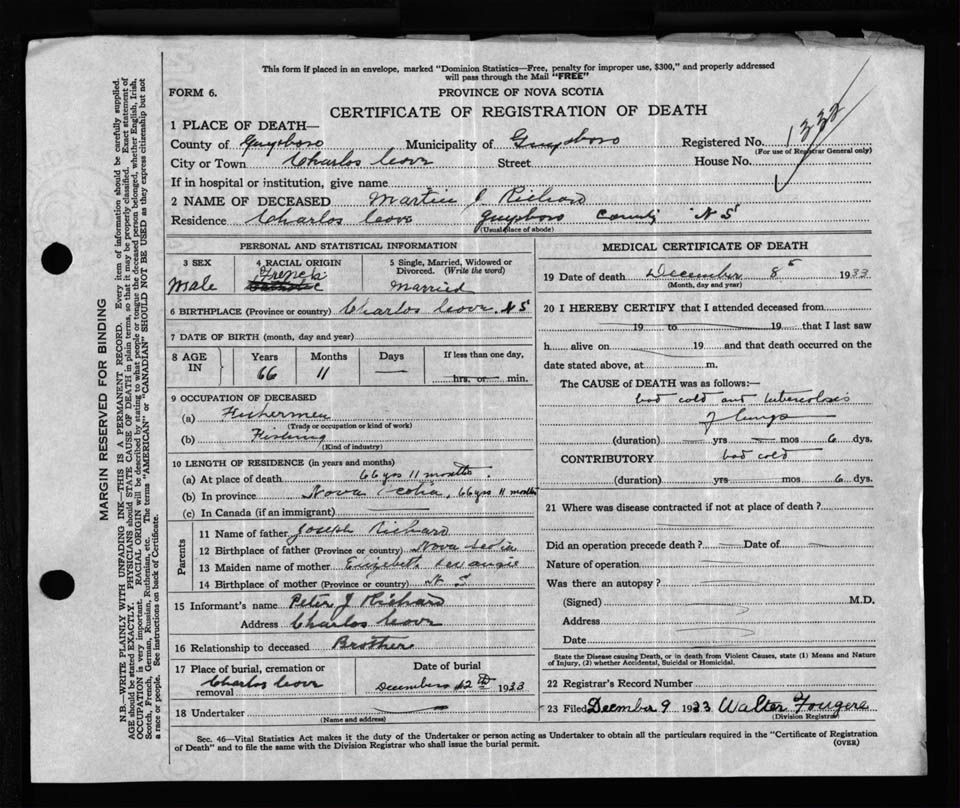 This form if placed in an envelope, marked "Dominion Statistics—Free, penalty for improper use, $300," and properly addressed
will pass through the Mail "FREE"
FORM 6.
PROVINCE OF NOVA SCOTIA
CERTIFICATE OF REGISTRATION OF DEATH
1 PLACE OF DEATH—
County of Guysboro Municipality of Guysboro Registered No. 1332
(For use of Registrar General only)
City or Town Charlos Cove Street House No.
If in hospital or institution, give name
2 NAME OF DECEASED Martin J Richard
Residence Charlos Cove Guysboro County N S
(Usual place of abode)
PERSONAL AND STATISTICAL INFORMATION
3 SEX 4 RACIAL ORIGIN 5 Single, Married, Widowed or
Divorced. (Write the word)
French
Male Catholic Married
6 BIRTHPLACE (Province or country) Charlos Cove. N S
7 DATE OF BIRTH (month, day and year)
8 AGE IN Years Months Days If less than one day,
66 11 — hrs. or min.
9 OCCUPATION OF DECEASED
(a) Fishermen
(Trade or occupation or kind of work)
(b) Fishing
(Kind of industry)
10 LENGTH OF RESIDENCE (in years and months)
(a) At place of death 66 yrs 11 months
(b) In province Nova Scotia, 66 yrs 11 months
(c) In Canada (if an immigrant)
Parents
11 Name of father Joseph Richard
12 Birthplace of father (Province or country) Nova Scotia
13 Maiden name of mother Elizebeth
14 Birthplace of mother (Province or country) N S
15 Informant's name Peter J Richard
Address Charlos Cove
16 Relationship to deceased Brother
17 Place of burial, cremation or Date of burial
removal Charlos Cove December 12th 1933
18 Undertaker
(Name and address)
MEDICAL CERTIFICATE OF DEATH
19 Date of death December 8 1933
(Month, day and year)
20 I HEREBY CERTIFY that I attended deceased from
19 to 19 that I last saw
h alive on 19 and that death occurred on the
date stated above, at m.
The CAUSE of DEATH was as follows:—
bad cold and tuberculoses
of lungs
(duration) yrs mos 6 dys.
CONTRIBUTORY bad cold
(duration) yrs mos 6 dys.
21 Where was disease contracted if not at place of death?
Did an operation precede death? Date of
Nature of operation
Was there an autopsy?
(Signed) M.D.
Address
Date
State the Disease causing Death, or in death from Violent Causes, state (1) Means and Nature
of Injury, (2) whether Accidental, Suicidal or Homicidal.
22 Registrar's Record Number
23 Filed December 9 1933 Walter Fougere
(Division Registrar)
Sec. 46—Vital Statistics Act makes it the duty of the Undertaker or person acting as Undertaker to obtain all the particulars required in the "Certificate of Registration
of Death" and to file the same with the Division Registrar who shall issue the burial permit.
(OVER)
MARGIN RESERVED FOR BINDING
N.B.—WRITE PLAINLY WITH UNFADING INK—THIS IS A PERMANENT RECORD. Every item of information should be carefully supplied.
AGE should be stated EXACTLY. PHYSICIANS should STATE CAUSE OF DEATH in plain terms, so that it may be properly classified. Exact statement of
OCCUPATION is very important. RACIAL ORIGIN will be described by stating to what people or tongue the deceased person belonged, whether English, Irish,
Scotch, French, German, Russian, Ruthenian, etc. The terms "AMERICAN" or "CANADIAN" SHOULD NOT BE USED as they express citizenship but not
a race or people. See instructions on back of Certificate.